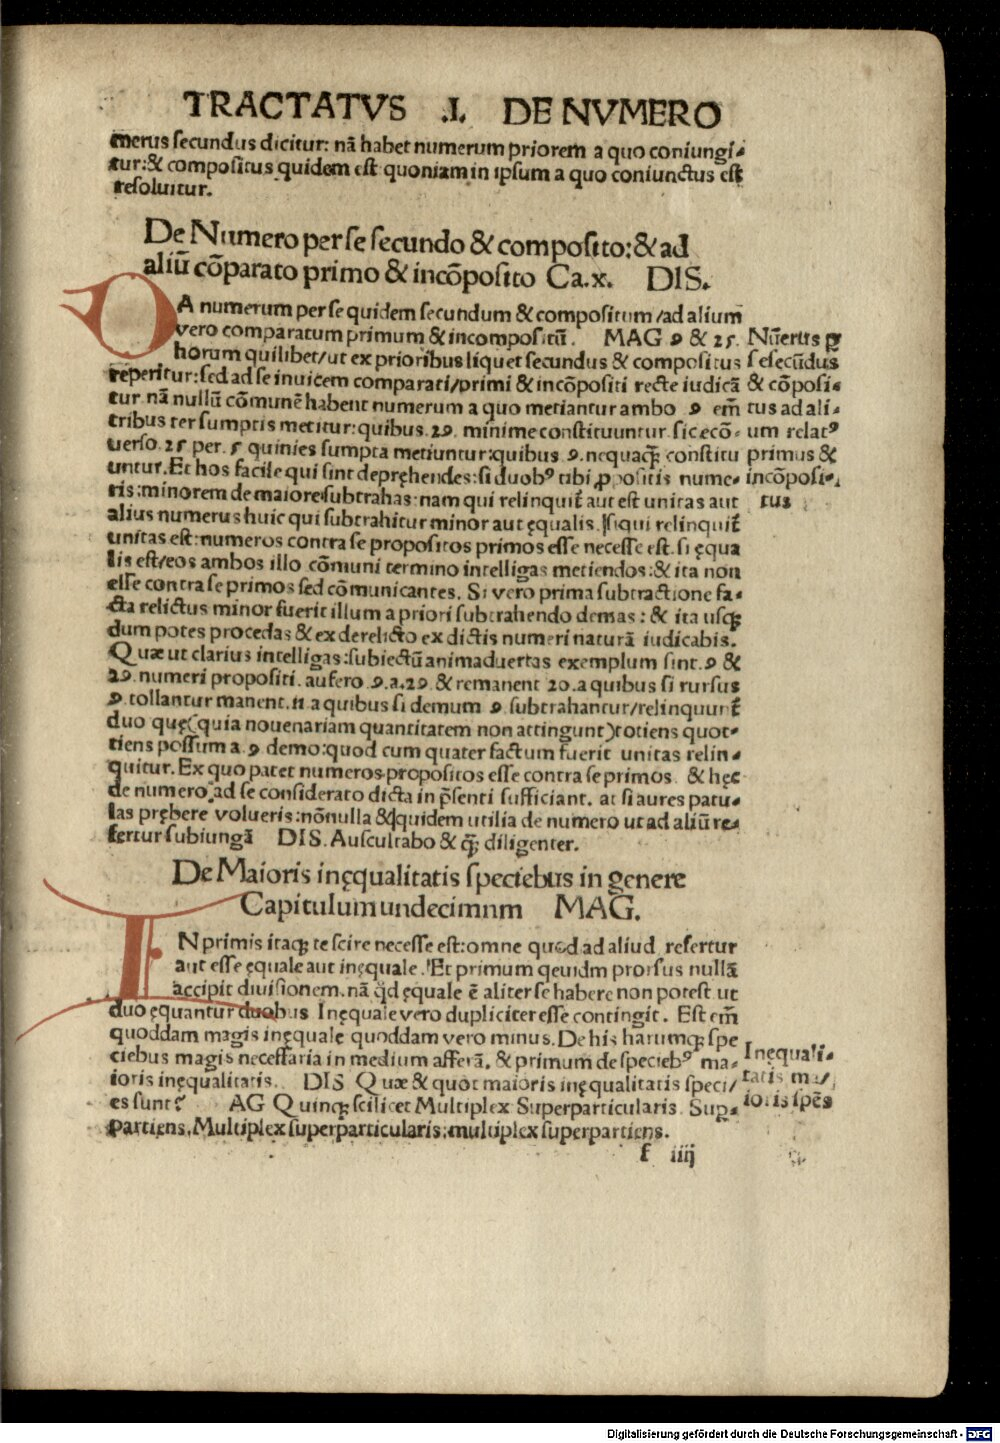 TRACTATVS .I. DE NVMERO
merus secundus dicitur: nā habet numerum priorem a quo coniungi⸗
tur:& compositus quidem est quoniam in ipsum a quo coniunctus est
resoluitur.
De Numero per se secundo & composito:& ad
aliū cōparato primo & incōposito Ca.x. DIS.
DA numerum per se quidem secundum & compositum/ad alium
vero comparatum primum & incompositū. MAG 9 & 25.
horum quilibet/ut ex prioribus liquet secundus & compositus
reperitur:sed ad se inuicem comparati/primi & incōpositi recte iudicā
tur nā nullū cōmunē habent numerum a quo metiantur ambo 9 em̄
tribus ter sumptis metitur:quibus.29. minime constituuntur.sic ecō⸗
uerso.25 per.5 quinies sumpta metiuntur:quibus 9.nequaꝗ̃ constitu
untur.Et hos facile qui sint depręhendes:si duobꝰ tibi ꝓpositis nume⸗
ris:minorem de maiore/subtrahas:nam qui relinquit̄ aut est unitas aut
alius numerus huic qui subtrahitur minor aut ęqualis.si qui relinquit̄
unitas est:numeros contra se propositos primos esse necesse est.si ęqua
lis est/eos ambos illo cōmuni termino intelligas metiendos:& ita non
esse contra se primos sed cōmunicantes. Si vero prima subtractione fa⸗
cta relictus minor fuerit illum a priori subtrahendo demas:& ita usꝗ̃
dum potes procedas & ex derelicto ex dictis numeri naturā iudicabis.
Quæ ut clarius intelligas:subiectū animaduertas exemplum sint.9 &
29.numeri propositi.aufero.9.a.29 & remanent 20.a quibus si rursus
9.tollantur manent.11 a quibus si demum 9 subtrahantur/relinquunt̄
duo quę(quia nouenariam quantitatem non attingunt)totiens quot⸗
tiens possum a.9 demo:quod cum quater factum fuerit unitas relin⸗
quitur.Ex quo patet numeros propositos esse contra se primos & hęc
de numero ad se considerato dicta in p̄senti sufficiant. at si aures patu⸗
las prębere volueris:nōnulla &quidem utilia de numero ut ad aliū re⸗
fertur subiungā DIS.Auscultabo & ꝗ̃ diligenter.
Nūerus ꝑ
se secūdus
& cōposi⸗
tus ad ali⸗
um relatꝰ
primus &
incōposi⸗
tus
De Maioris inęqualitatis speciebus in genere
Capitulum undecimnm MAG.
IN primis itaꝗ te scire necesse est:omne quod ad aliud refertur
aut esse ęquale aut inęquale.Et primum qeuidm prorsus nullā
accipit diuisionem.nā q̄d ęquale ē aliter se habere non potest ut
duo ęquantur duobus Inęquale vero dupliciter esse contingit. Est em̄
quoddam magis inęquale quoddam vero minus.De his harumꝗ spe
ciebus magis necessaria in medium afferā.& primum de speciebꝰ ma⸗
ioris inęqualitatis. DIS Quæ & quot maioris inęqualitatis speci/
es sunt? AG Quinꝗ scilicet Multiplex Superparticularis Sup⸗
partiens.Multiplex superparticularis:multiplex superpartiens.
Inęquali⸗
tatis ma/
ioris spēs
f iiij